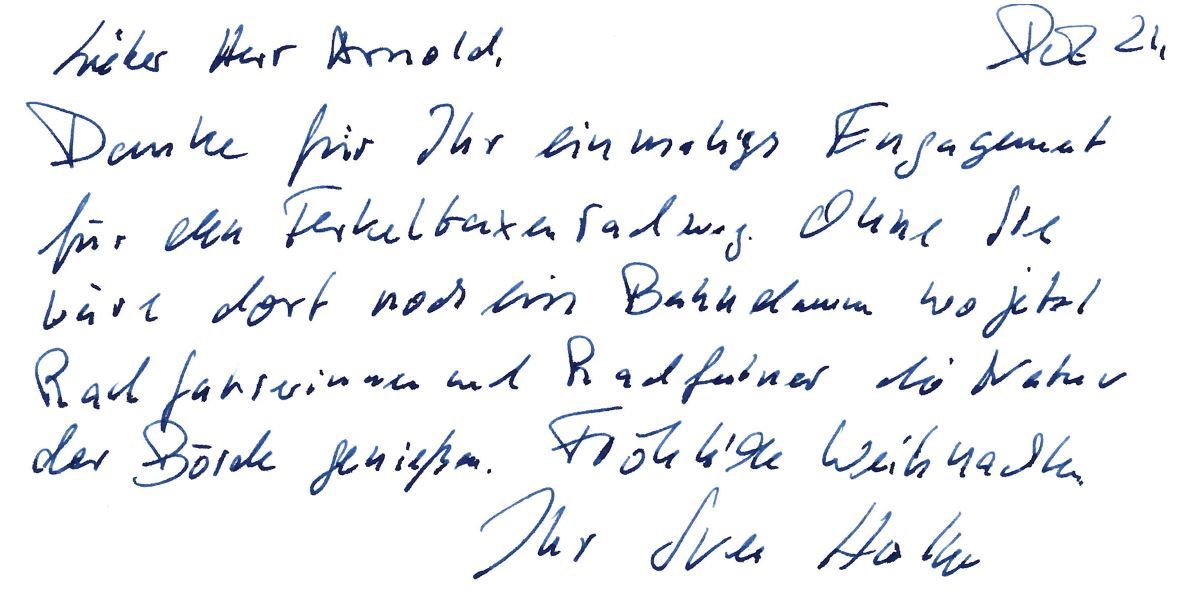 Lieber Herr Arnold, Dez 21,
Danke für Ihr einmaliges Engagement
für den Ferkeltaxenradweg. Ohne Sie
wäre dort noch ein Bahndamm wo jetzt
Radfahrerinnen und Radfahrer die Natur
der Börde genießen. Fröhliche Weihnachten
Ihr Sven